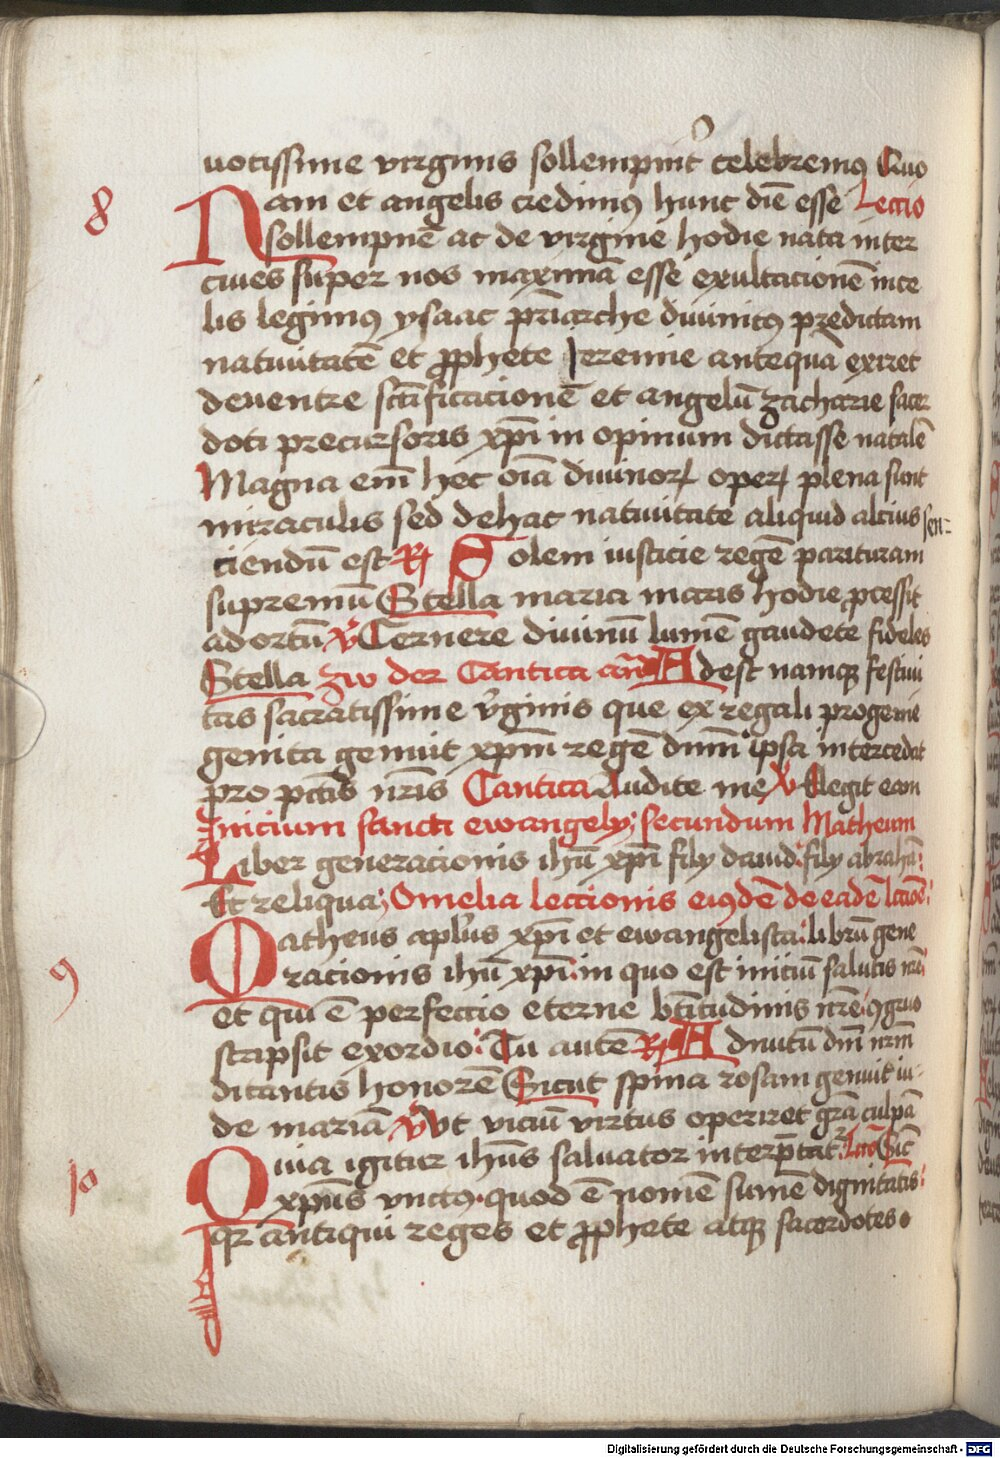 uotissime virginis sollempnit celebremus Quo
8
Nam et angelis credimus hunc diē esse Leccio
sollempnē ac de virgine hodie nata inter
ciues super nos maximā esse exultacionē in ce
lis legimus ysaac pr̄iarche diuinitus predictam
natiuitatē et ꝓphete Jeremie antequā exiret
de uentre sc̄ificacionē et angelū zacharie sacer
doti precursoris xp̄i in opinum dictasse natalē
Magna em̄ hec oīa diuinoꝝ operꝝ plena sunt
miraculis sed de hac natiuitate aliquid altius sen=
ciendū est R Solem iusticie regē paritura
supremū Stella maria maris hodie ꝓcessit
ad ortū V Cernere diuinū lumē gaudete fideles
Stella zw der Cantica an̄ Adest namqꝫ festiui
tas sacratissime v̄ginis que ex regali progenie
genita genuit xp̄m regē dn̄m ipsa intercedat
pro pctīs nr̄is Cantica Audite me V Elegit eam
Inicium sancti ewangelij; secundum Matheum
Liber generacionis ihū xp̄i filij dauid: filij abrahā:
Et reliqua; Omelia leccionis eiusdē de eadē lcc̄ōe:
9
Matheus apl̄us xp̄i et ewangelista: librū gene
racionis ihū xp̄i: in quo est iniciū salutis nr̄e:
et qui ē perfeccio eterne bt̄itudinis nr̄e: ꝯgruo
scripsit exordio: Tu autē R Ad nutū dn̄i nr̄m
ditantis honorē Sicut spina rosam genuit iu-
de mariā V Vt viciū virtus operiret gr̄a culpā
10
Quia igitur ihūs saluator interp̄tatr: Lcc̄o Sic̄
xp̄us vnctus. quod ē nomē summē dignitatis:
qr antiqui reges et ꝓphete atqꝫ sacerdotes
Digitalisierung gefördert durch die Deutsche Forschungsgemeinschaft - DFG